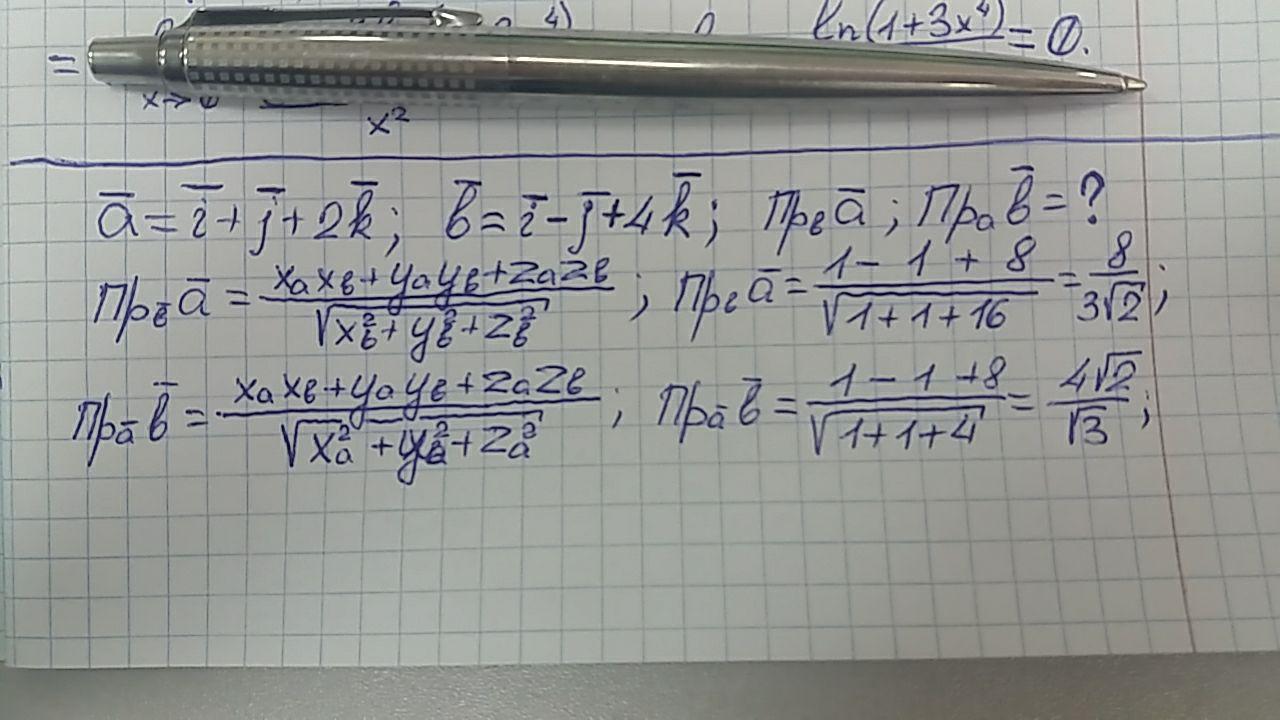 4) ln(1+3x⁴) = 0.
=
x→0
x²
a̅ = i̅ + j̅ + 2k̅; b̅ = i̅ - j̅ + 4k̅; Прв a̅; Пра b̅ = ?
Прв̅ a̅ = (xₐxв + yₐyв + zₐzв) / √(xв² + yв² + zв²); Прв a̅ = (1 - 1 + 8) / √(1+1+16) = 8 / 3√2;
Пра̅ b̅ = (xₐxв + yₐyв + zₐzв) / √(xₐ² + yₐ² + zₐ²); Пра̅ b̅ = (1 - 1 + 8) / √(1+1+4) = 4√2 / √3;